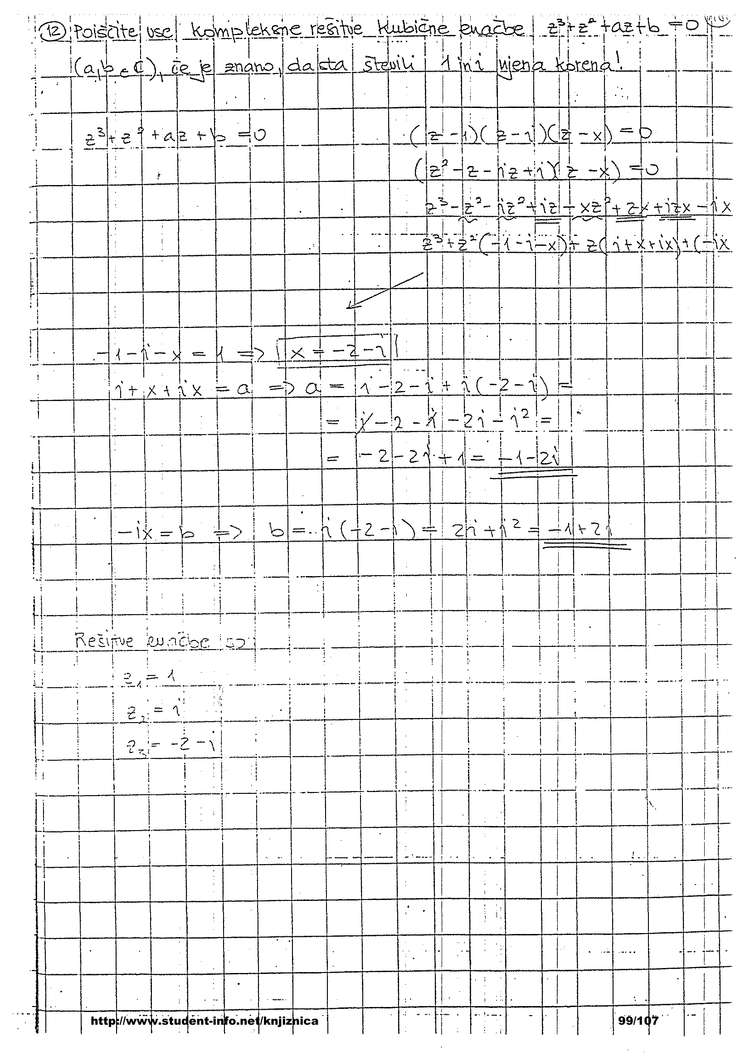 12 Poiščite vse kompleksne rešitve kubične enačbe z³+z²+az+b=0
(a,b∈ℂ), če je znano, da sta števili 1 in i njena korena!
z³+z²+az+b=0
(z-1)(z-i)(z-x)=0
(z²-z-iz+i)(z-x)=0
z³-z²-iz²+iz-xz²+zx+izx-ix
z³+z²(-1-i-x)+z(i+x+ix)+(-ix
-1-i-x=1 => x=-2-i
i+x+ix=a => a = i-2-i+i(-2-i)=
= i-2-i-2i-i²=
= -2-2i+1= -1-2i
-ix=b => b=-i(-2-i)= 2i+i²= -1+2i
Rešitve enačbe so:
z₁=1
z₂=i
z₃=-2-i
http://www.student-info.net/knjiznica
99/107